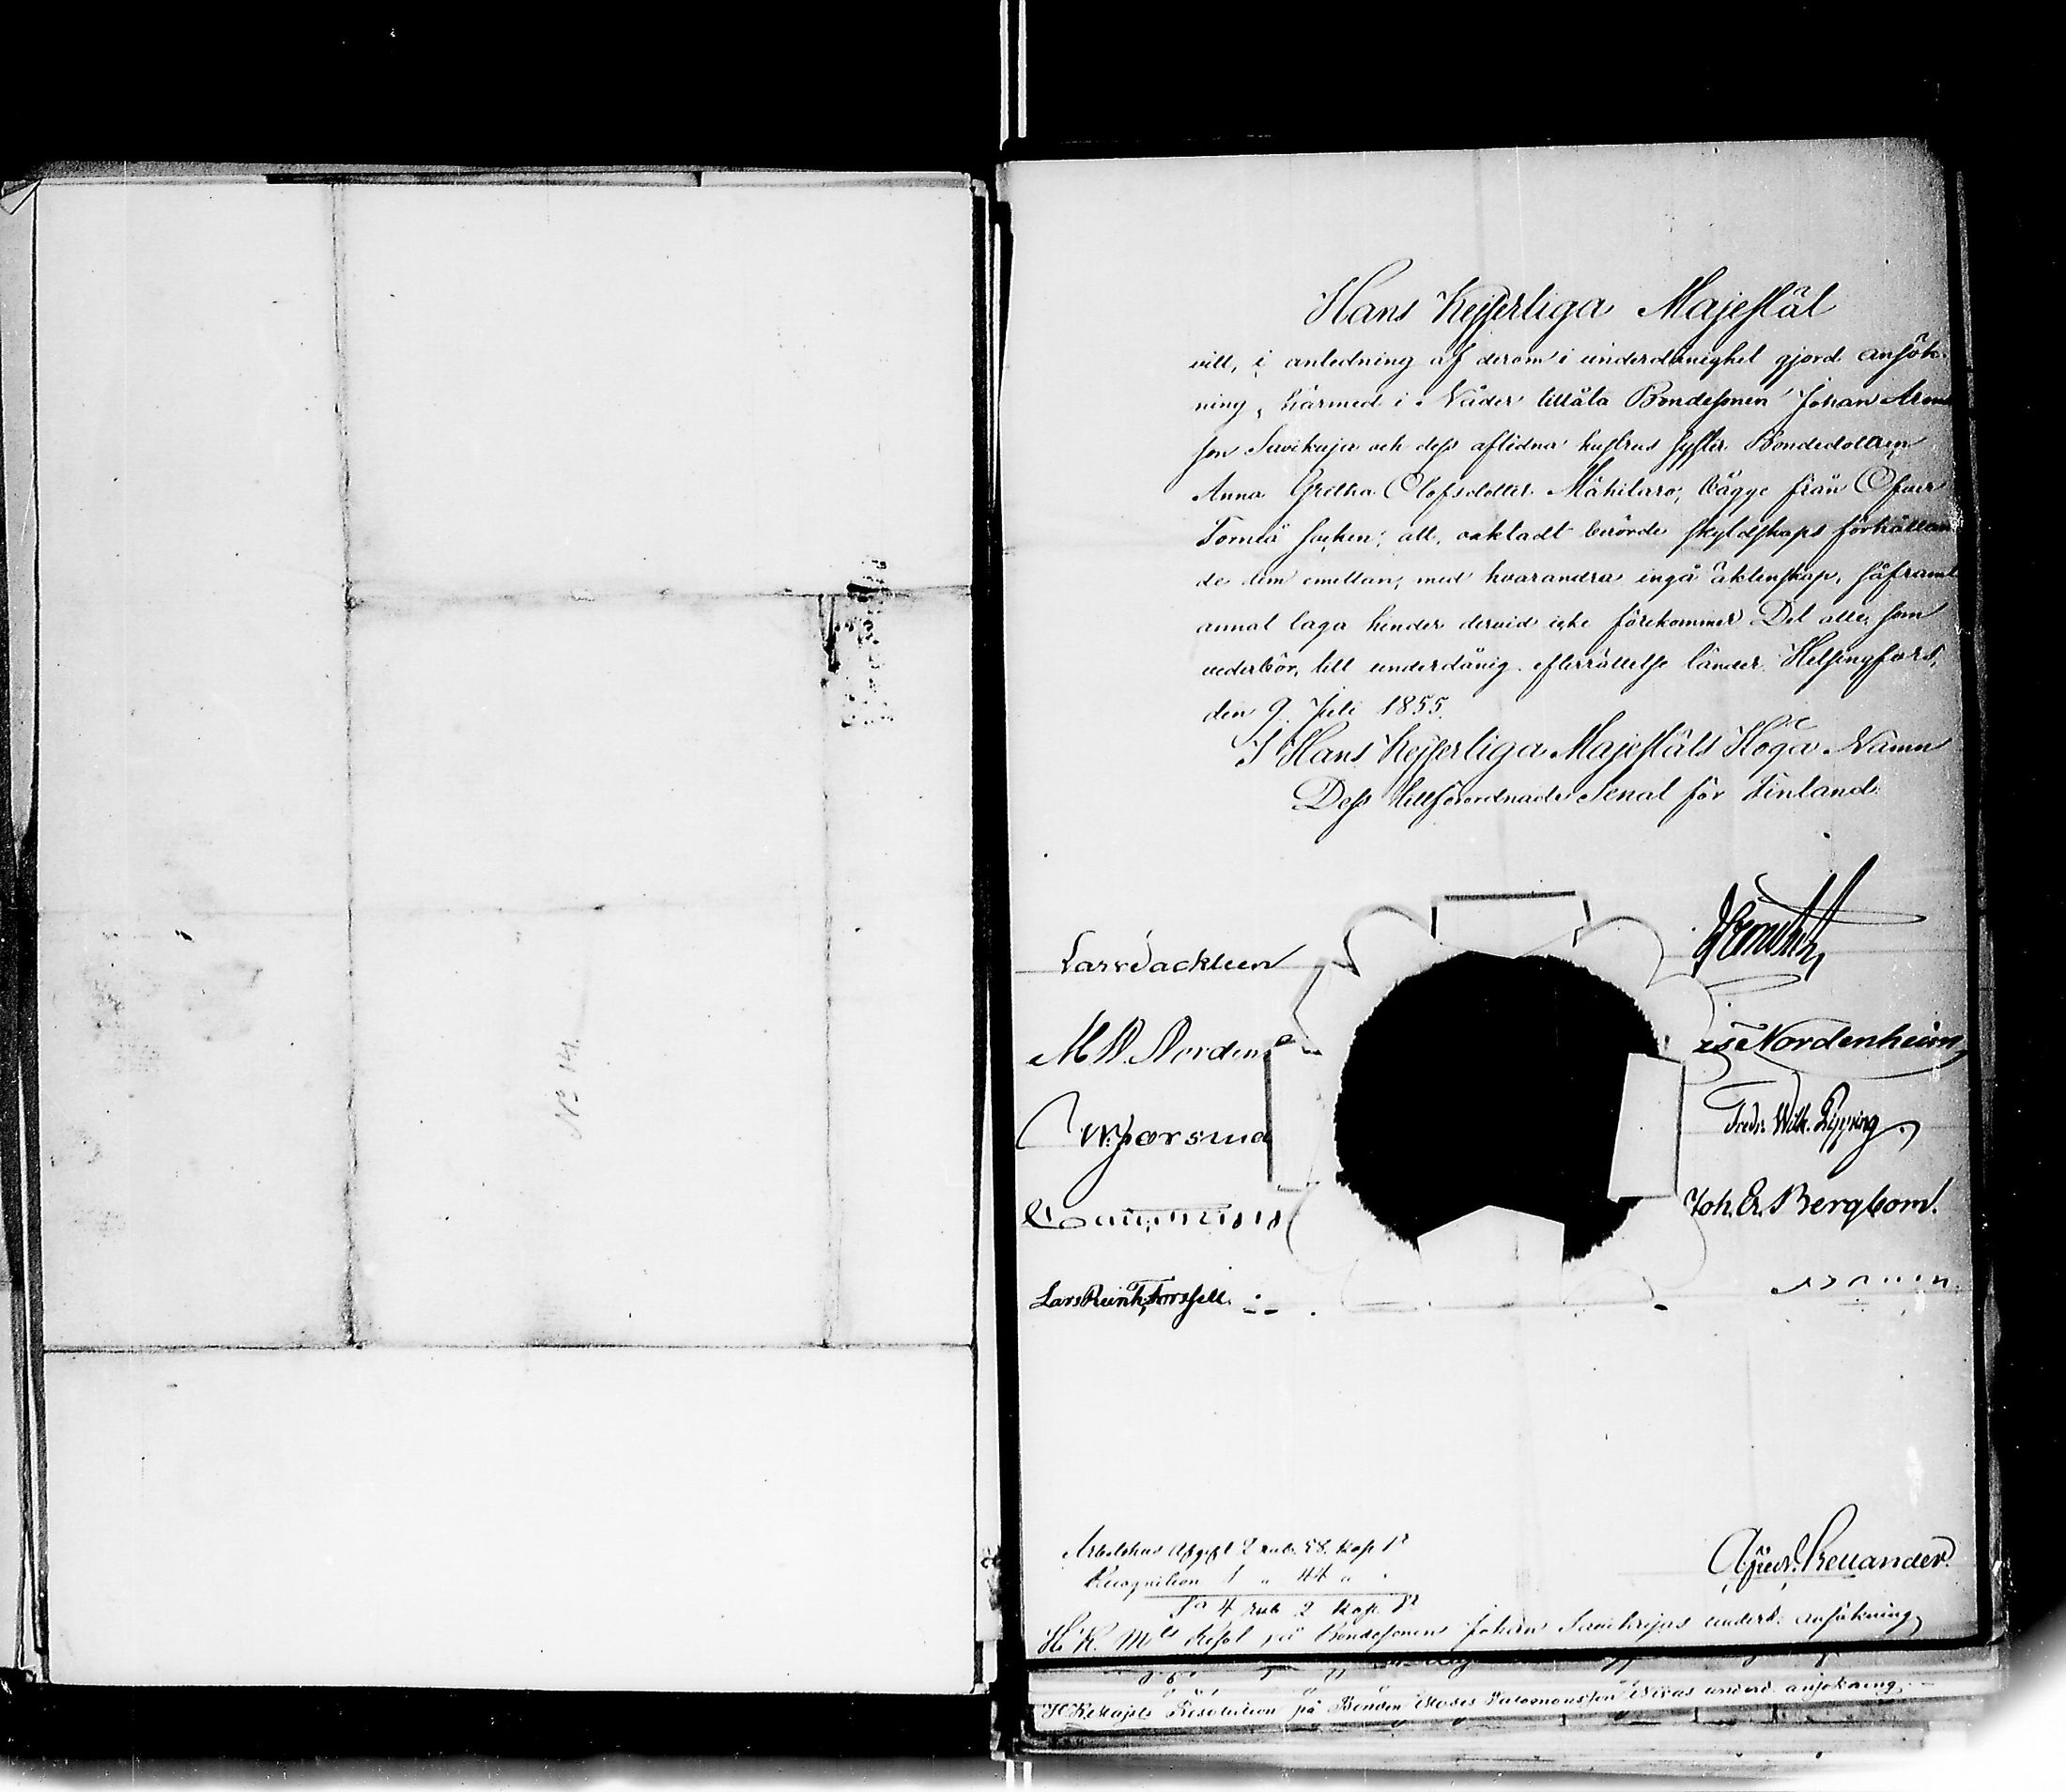 Nº 14.
Hans Kejserliga Majestät
vill, i anledning af derom i underdånighet gjord ansök-
ning, härmed i Nåder tillåta Bondesonen Johan Arons
son Savikuja och dess aflidna hustrus syster Bondedottren
Anna Gretha Olofsdotter Måhilaro, bägge från Öfver
Torneå socken, att, oaktadt berörde skyldskaps förhållan
de dem emellan, med hvarandra ingå äktenskap, såframt
annat laga hinder dervid icke förekommer. Det alle, som
vederbör, till underdånig efterrättelse länder. Helsingfors,
den 9 Juli 1855.
I Hans Kejserliga Majestäts Höga Namn
Dess tillförordnade Senat för Finland:
Lars Sackleen
M W Norden
Nordenheim
Fredr. Wilh. Pipping
Joh. Er. Bergbom.
Lars Reinh. Forssell
Arbetshus Afgift 2 rub. 58 kop. Sr
Recognition 1 " 44 "
Sa 4 rub 2 kop. Sr
Kellander.
H. K. Mts Resol på Bondesonen Johan Savikujas underd: ansökning
H K Majsts Resolution på Bonden Moses Salomonsson underd. ansökning